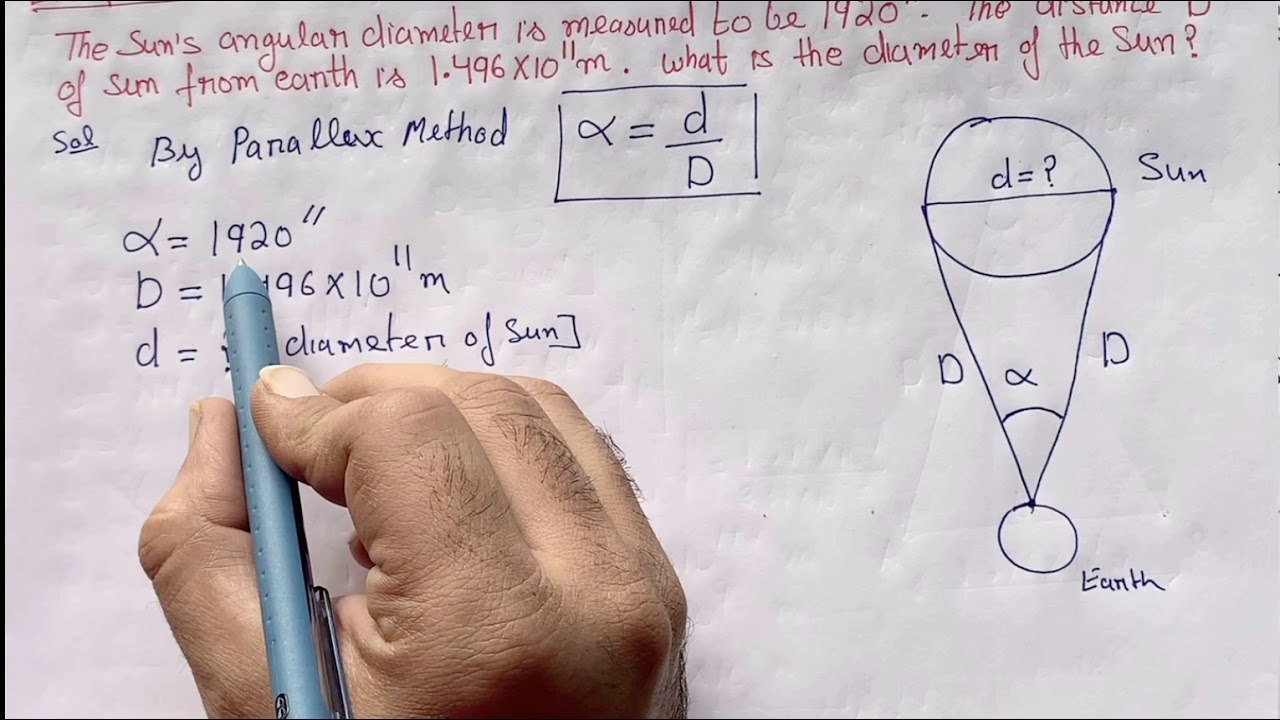 The Sun's angular diameter is measured to be 1920". The distance D
of sun from earth is 1.496×10¹¹m. what is the diameter of the Sun?
Sol By Parallax Method α = d/D
α = 1920"
D = 1.496×10¹¹m
d = diameter of Sun]
d = ?
Sun
D α D
Earth